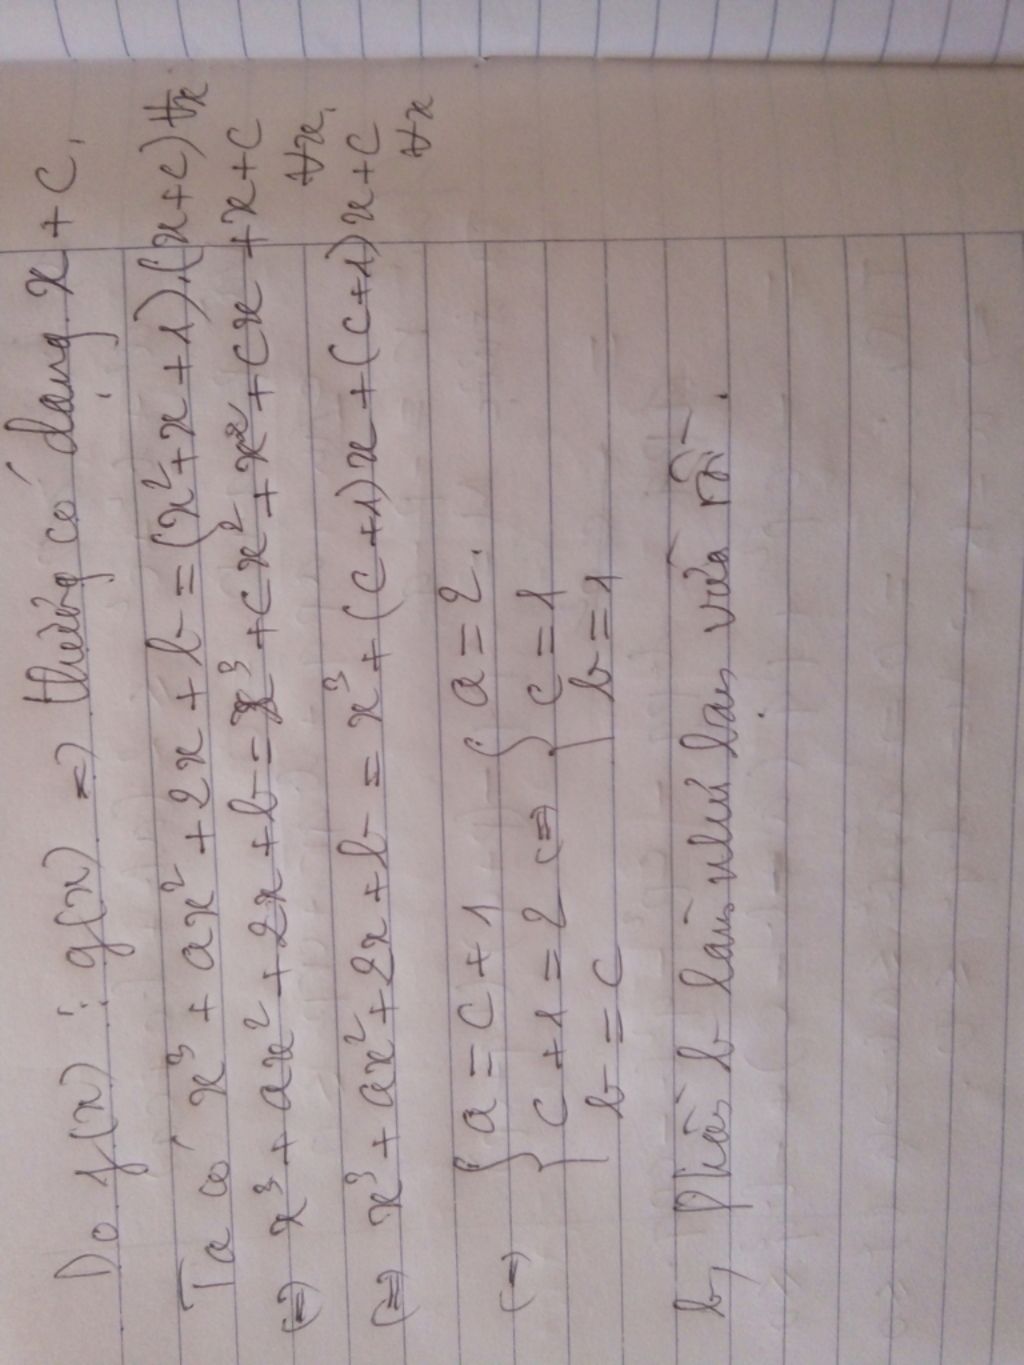 Do f(x) ⋮ g(x) => thương có dạng x + c.
Ta có x³ + ax² + 2x + b = (x² + x + 1).(x+c) ∀x
(=) x³ + ax² + 2x + b = x³ + cx² + x² + cx + x + c
∀x.
(=) x³ + ax² + 2x + b = x³ + (c+1)x + (c+1)x + c
∀x
(=) { a = c + 1 { a = 2.
c + 1 = 2 (=) c = 1
b = c b = 1
b, Phần b làm như bài vừa rồi.